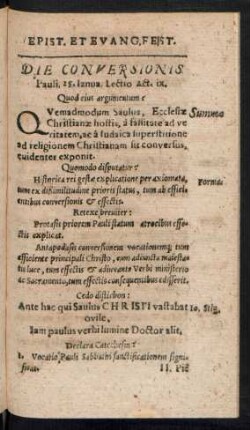 EPIST. ET EVANG. FEST.
DIE CONVERSIONIS
Pauli, 25. Ianua. Lectio Act. ix.
Quod eius argumentum?
QVemadmodum Saulus, Ecclesiæ Summa
Christianæ hostis, à falsitate ad ve
ritatem, ac à Iudaica superstitione
ad religionem Christianam sit conversus,
evidenter exponit.
Quomodo disputatur?
Historica rei gestæ explicatione per axiomata, Forma
tum ex dissimilitudine prioris status, tum ab efficien
tibus conversionis & effectis.
Retexe breviter:
Protasis priorem Pauli statum atrocibus effe-
ctis explicat.
Antapodosis conversionem vocationemq; tum
efficiente principali Christo, cum adiuncta maiesta-
tis luce, tum effectis & adiuvante Verbi ministerio
ac Sacramento, tum effectis consequentibus disserit.
Cedo distichon:
Ante hac qui Saulus CHRISTI vastabat Io. Stig.
ovile,
Iam paulus verbi lumine Doctor alit,
Declara Catechesin?
1. Vocatio Pauli Sabbathi sanctificationem signi-
ficat.